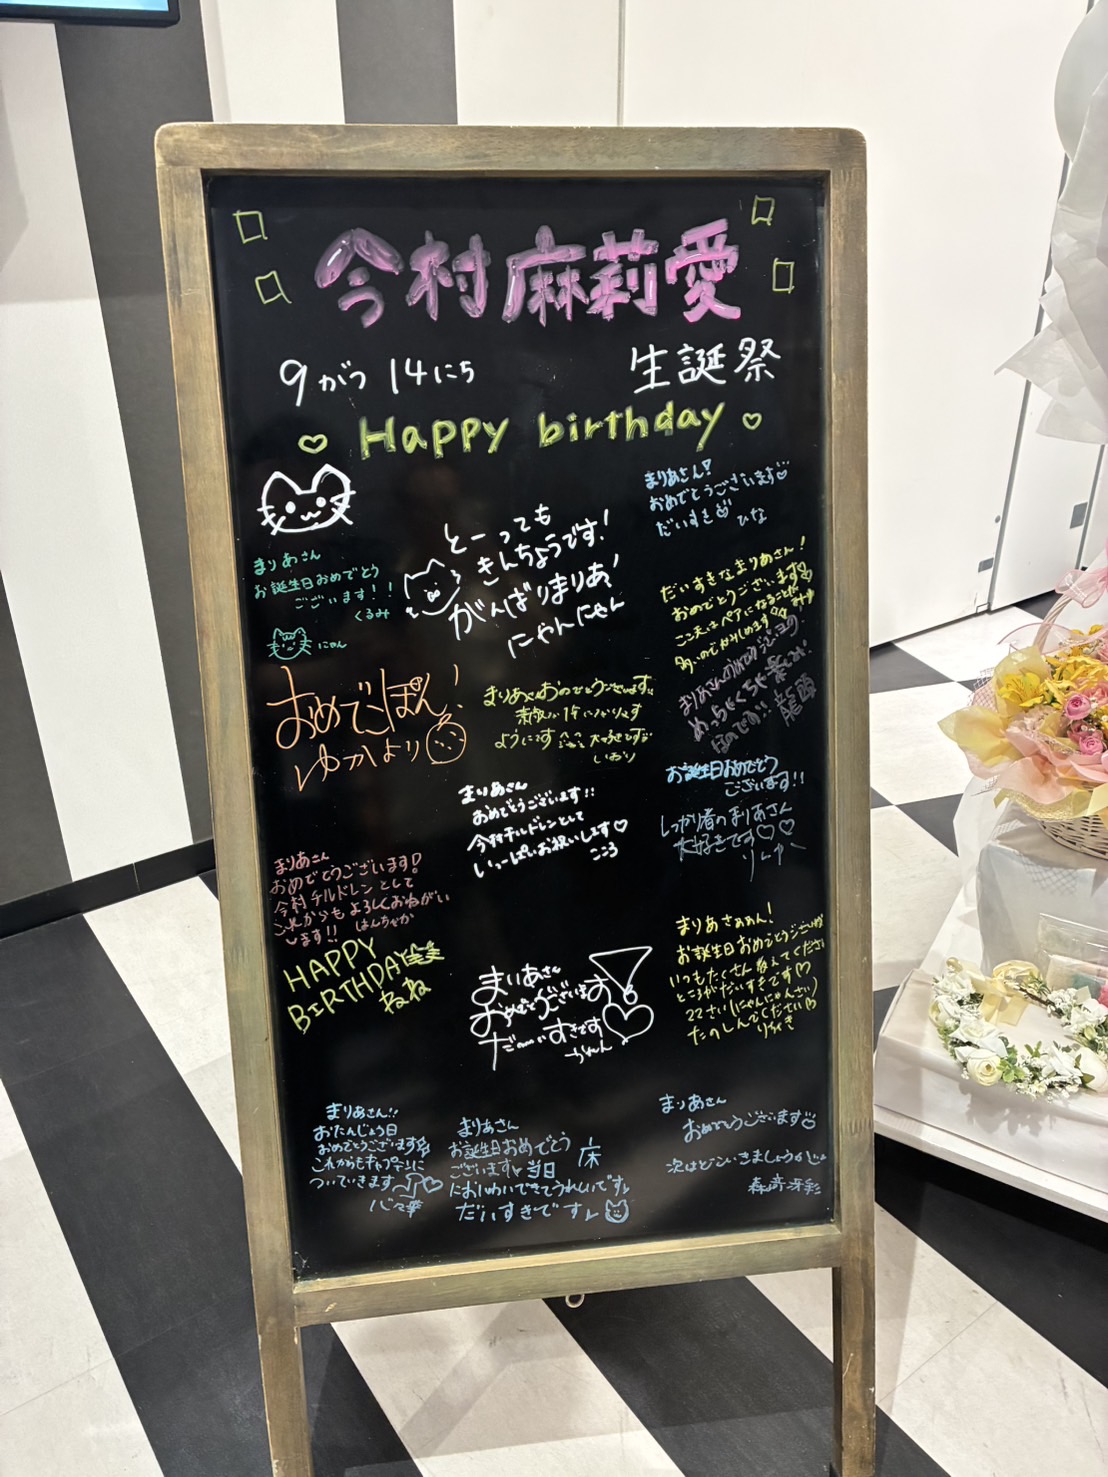 今村麻莉愛
9がつ 14にち
生誕祭
Happy birthday
まりあさん!
おめでとうございます
だいすき
ひな
とーっても
きんちょうです!
がんばりまりあ!
にゃんにゃん
まりあさん
お誕生日おめでとう
ございます!!
くるみ
にゃん
だいすきなまりあさん!
おめでとうございます
ここ天はペアになることが
多いのでかみしめます
おめでこぽん!
ゆかより
まりあさんおめでとうございます
ように
いおり
めっちゃくちゃ
龍頭
お誕生日おめでとう
ございます!!
しっかり者のまりあさん
大好きです♡♡
りーゆー
まりあさん
おめでとうございます!!
今村チルドレンとして
いっぱいお祝いします♡
こころ
まりあさん
おめでとうございます!
今村チルドレンとして
これからもよろしくおねがい
します!!
はんちゃか
HAPPY
BIRTHDAY
ねね
まりあさぁぁん!
お誕生日おめでとうございます
いつもたくさん教えてくださる
ところがだいすきです♡
22さい(にゃんにゃんさい)
たのしんでください
まいあさん
おめでとうございます!
だーいすきです
まりあさん!!
おたんじょう日
おめでとうございます
これからもキャプテンに
ついていきます
まりあさん
お誕生日おめでとう
ございます 当日
においわいできてうれしいです
だいすきです
まりあさん
おめでとうございます
次はどこいきましょうか